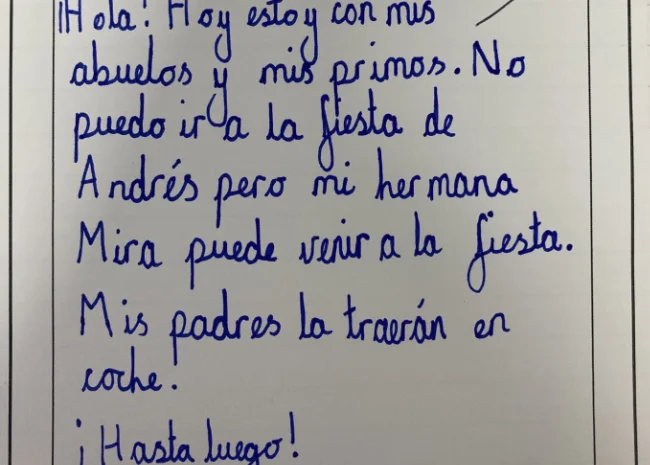 ¡Hola! Hoy estoy con mis
abuelos y mis primos. No
puedo ir a la fiesta de
Andrés pero mi hermana
Mira puede venir a la fiesta.
Mis padres la traerán en
coche!
¡Hasta luego!